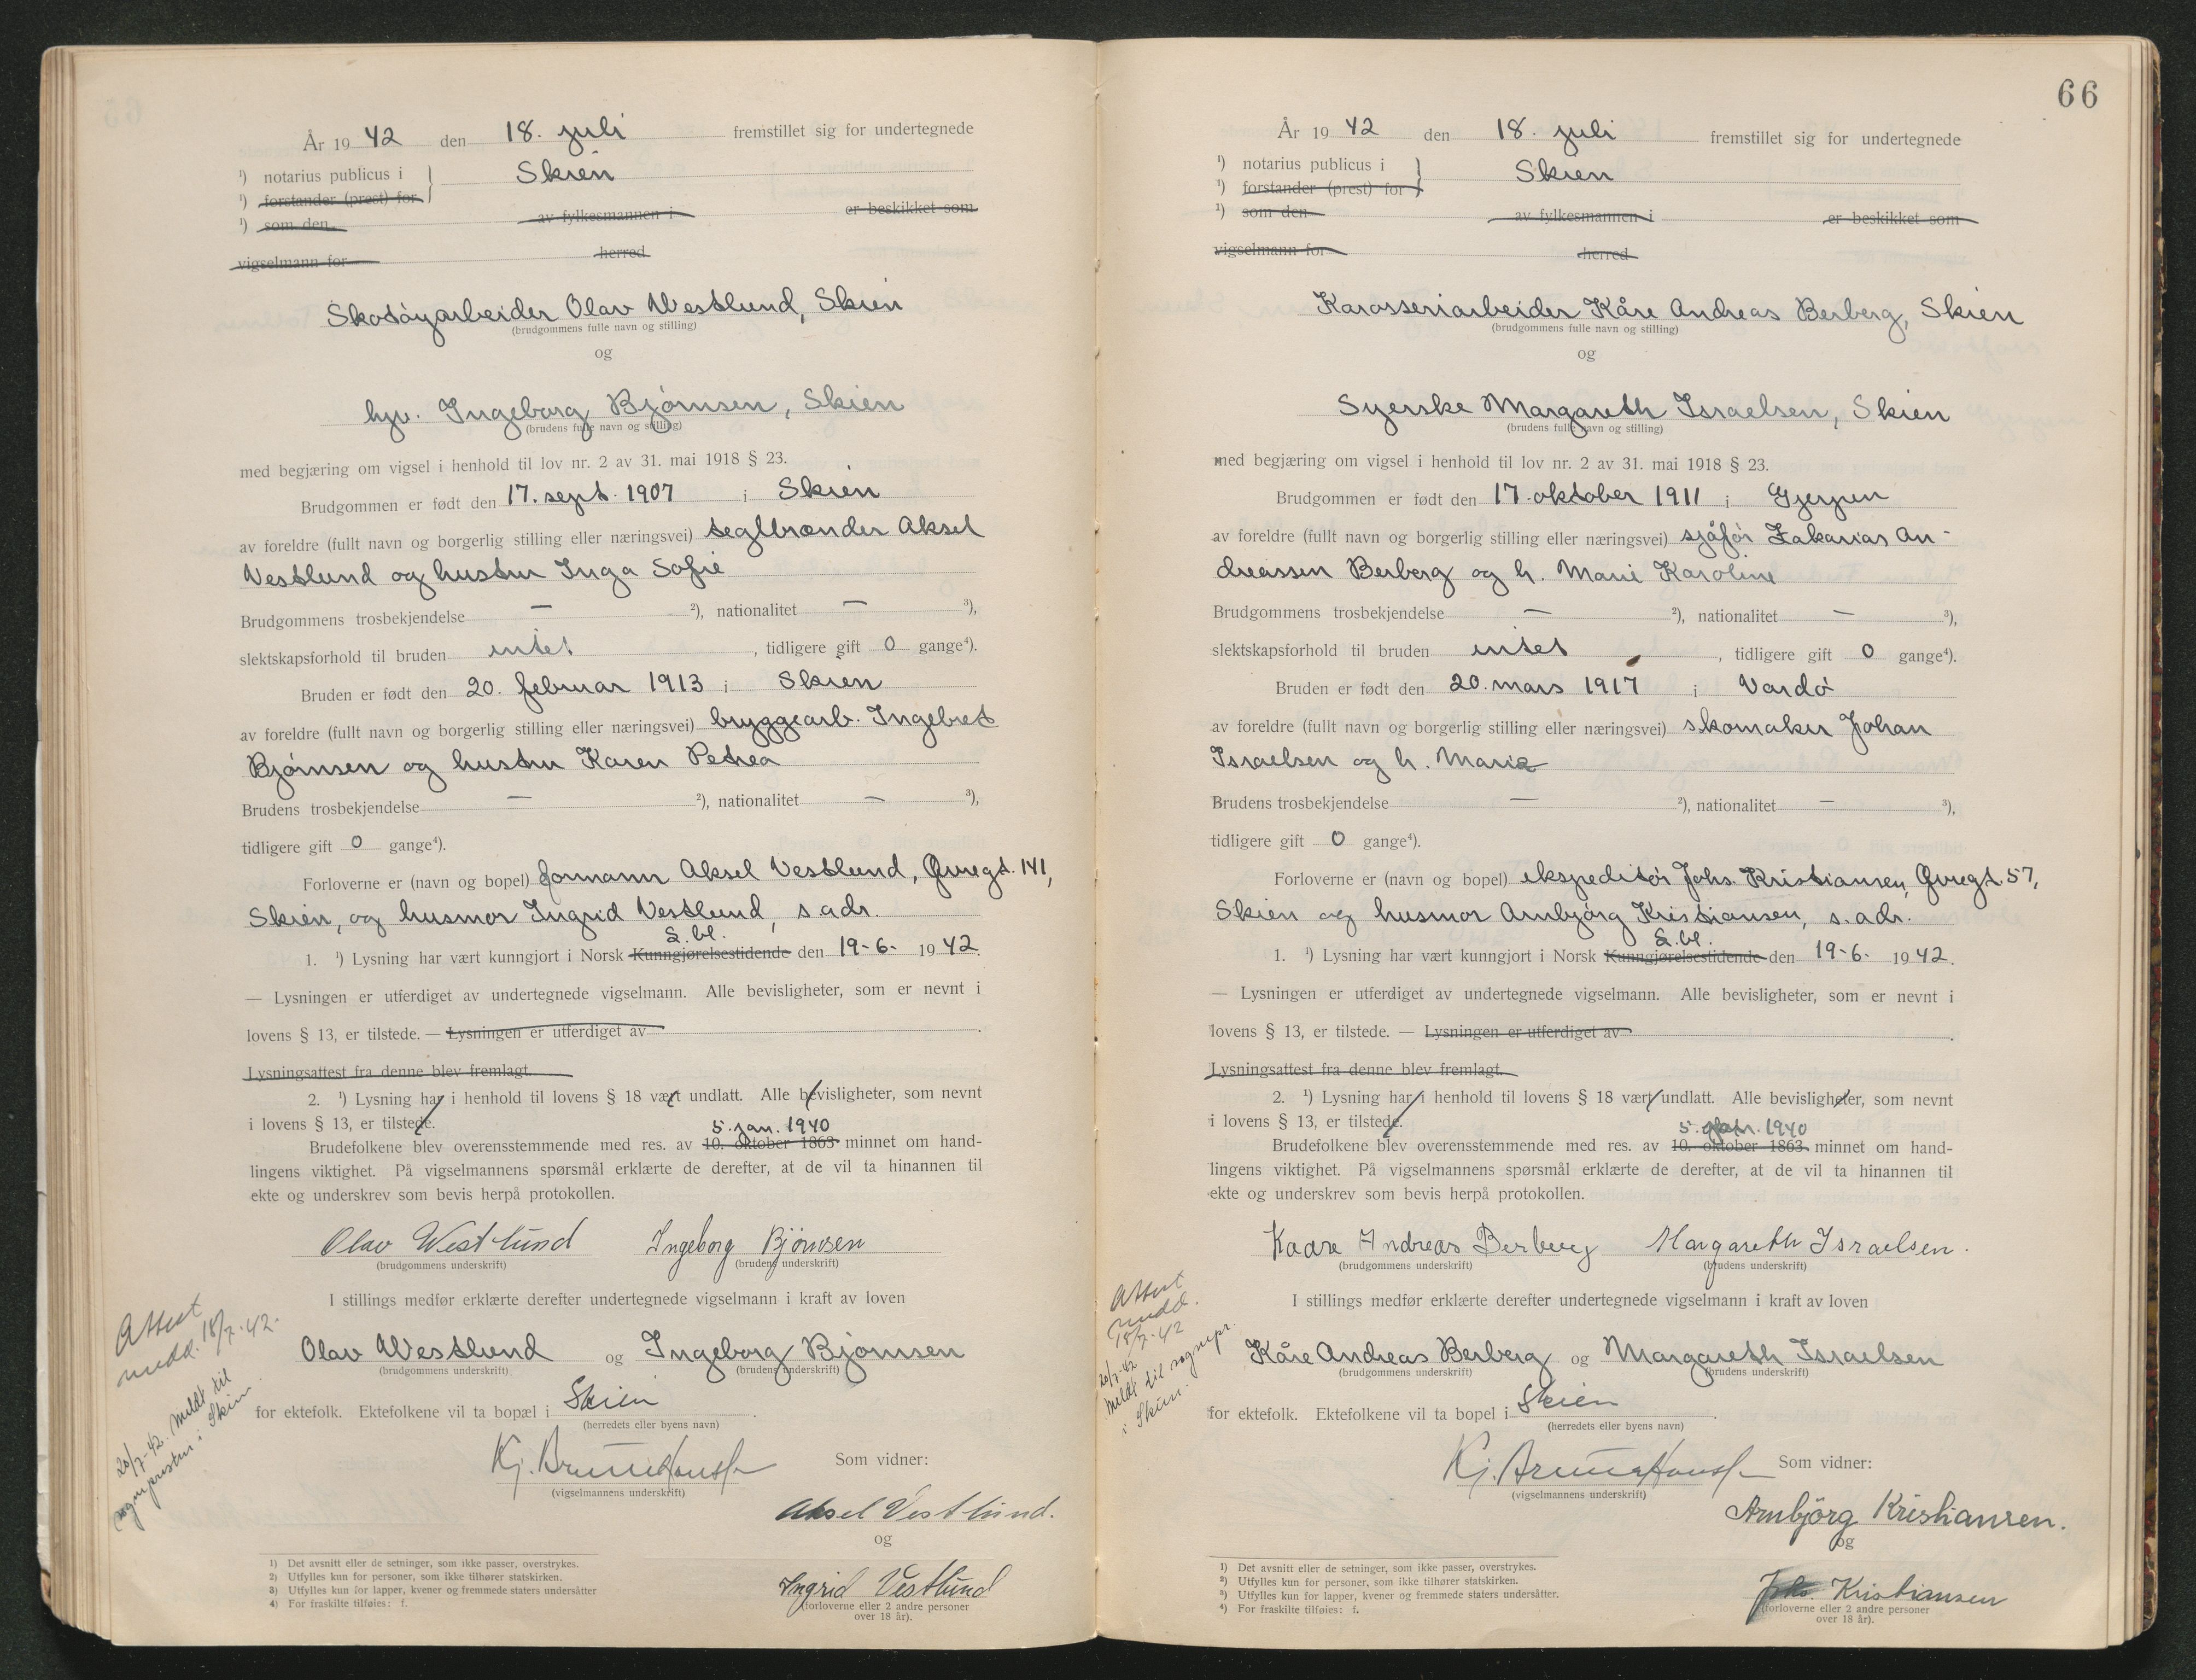 År 19 42 den 18. juli fremstillet sig for undertegnede
¹) notarius publicus i } Skien
¹) forstander (prest) for
¹) som den av fylkesmannen i er beskikket som
vigselmann for herred
Skotøyarbeider Olav Westlund, Skien
(brudgommens fulle navn og stilling)
og
hyv. Ingeborg Bjørnsen, Skien
(brudens fulle navn og stilling)
med begjæring om vigsel i henhold til lov nr. 2 av 31. mai 1918 § 23.
Brudgommen er født den 17. sept. 1907 i Skien
av foreldre (fullt navn og borgerlig stilling eller næringsvei) teglbrænder Aksel
Vestlund og hustru Inga Sofie
Brudgommens trosbekjendelse — ²), nationalitet — ³),
slektskapsforhold til bruden intet, tidligere gift 0 gange⁴).
Bruden er født den 20. februar 1913 i Skien
av foreldre (fullt navn og borgerlig stilling eller næringsvei) bryggearb. Ingebret
Bjørnsen og hustru Karen Petrea
Brudens trosbekjendelse — ²), nationalitet — ³),
tidligere gift 0 gange⁴).
Forloverne er (navn og bopel) formann Aksel Vestlund, Øvregt. 141,
Skien, og husmor Ingrid Vestlund, s. adr.
S. bl.
1. ¹) Lysning har vært kunngjort i Norsk Kunngjørelsestidende den 19-6- 19 42.
— Lysningen er utferdiget av undertegnede vigselmann. Alle bevisligheter, som er nevnt i
lovens § 13, er tilstede. — Lysningen er utferdiget av
Lysningsattest fra denne blev fremlagt.
2. ¹) Lysning har i henhold til lovens § 18 vært undlatt. Alle bevisligheter, som nevnt
i lovens § 13, er tilstede.
5. jan. 1940
Brudefolkene blev overensstemmende med res. av 10. oktober 1863 minnet om hand-
lingens viktighet. På vigselmannens spørsmål erklærte de derefter, at de vil ta hinannen til
ekte og underskrev som bevis herpå protokollen.
Olav Westlund Ingeborg Bjørnsen
(brudgommens underskrift) (brudens underskrift)
I stillings medfør erklærte derefter undertegnede vigselmann i kraft av loven
Attest
medd. 18/7-42.
Olav Westlund og Ingeborg Bjørnsen
(brudgommens underskrift) (brudens underskrift)
20/7-42. Meldt til
sognepresten i Skien.
for ektefolk. Ektefolkene vil ta bopæl i Skien.
(herredets eller byens navn)
Kj. Som vidner:
(vigselmannens underskrift)
Aksel Vestlund.
og
Ingrid Vestlund
(forloverne eller 2 andre personer
over 18 år).
1) Det avsnitt eller de setninger, som ikke passer, overstrykes.
2) Utfylles kun for personer, som ikke tilhører statskirken.
3) Utfylles kun for lapper, kvener og fremmede staters undersåtter
4) For fraskilte tilføies: f.
66
År 19 42 den 18. juli fremstillet sig for undertegnede
¹) notarius publicus i } Skien
¹) forstander (prest) for
¹) som den av fylkesmannen i er beskikket som
vigselmann for herred
Karosseriarbeider Kåre Andreas Berberg, Skien
(brudgommens fulle navn og stilling)
og
Syerske Margareth Israelsen, Skien
(brudens fulle navn og stilling)
med begjæring om vigsel i henhold til lov nr. 2 av 31. mai 1918 § 23.
Brudgommen er født den 17. oktober 1911 i Gjerpen
av foreldre (fullt navn og borgerlig stilling eller næringsvei) sjåfør Zakarias An-
dreassen Berberg og h. Marie Karoline
Brudgommens trosbekjendelse — ²), nationalitet — ³),
slektskapsforhold til bruden intet, tidligere gift 0 gange⁴).
Bruden er født den 20. mars 1917 i Vardø
av foreldre (fullt navn og borgerlig stilling eller næringsvei) skomaker Johan
Israelsen og h. Maria
Brudens trosbekjendelse — ²), nationalitet — ³),
tidligere gift 0 gange⁴).
Forloverne er (navn og bopel) ekspeditør Johs. Kristiansen, Øvregt. 57,
Skien og husmor Arnbjørg Kristiansen, s. adr.
S. bl.
1. ¹) Lysning har vært kunngjort i Norsk Kunngjørelsestidende den 19-6- 19 42.
— Lysningen er utferdiget av undertegnede vigselmann. Alle bevisligheter, som er nevnt i
lovens § 13, er tilstede. — Lysningen er utferdiget av
Lysningsattest fra denne blev fremlagt.
2. ¹) Lysning har i henhold til lovens § 18 vært undlatt. Alle bevisligheter, som nevnt
i lovens § 13, er tilstede.
5. 1940
Brudefolkene blev overensstemmende med res. av 10. oktober 1863 minnet om hand-
lingens viktighet. På vigselmannens spørsmål erklærte de derefter, at de vil ta hinannen til
ekte og underskrev som bevis herpå protokollen.
Kaare Andreas Berberg Margareth Israelsen.
(brudgommens underskrift) (brudens underskrift)
I stillings medfør erklærte derefter undertegnede vigselmann i kraft av loven
Attest
medd.
18/7-42
Kåre Andreas Berberg og Margareth Israelsen
(brudgommens underskrift) (brudens underskrift)
20/7-42
Meldt til sognepr.
i Skien.
for ektefolk. Ektefolkene vil ta bopel i Skien.
(herredets eller byens navn)
Kj. Som vidner:
(vigselmannens underskrift)
Arnbjörg Kristiansen.
og
Johs. Kristiansen
(forloverne eller 2 andre personer
over 18 år).
¹) Det avsnitt eller de setninger, som ikke passer, overstrykes.
²) Utfylles kun for personer, som ikke tilhører statskirken.
³) Utfylles kun for lapper, kvener og fremmede staters undersåtter.
⁴) For fraskilte tilføies: f.